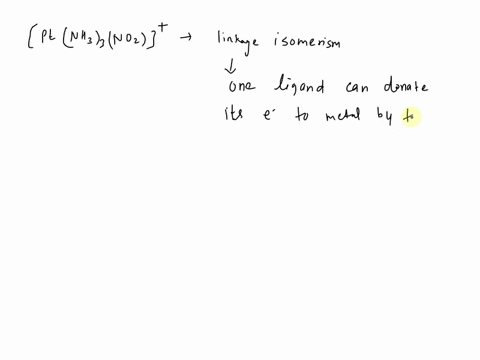 [Pt (NH3)3 (NO2)]+ → linkage isomerism
↓
one ligand can donate
its e- to metal by t